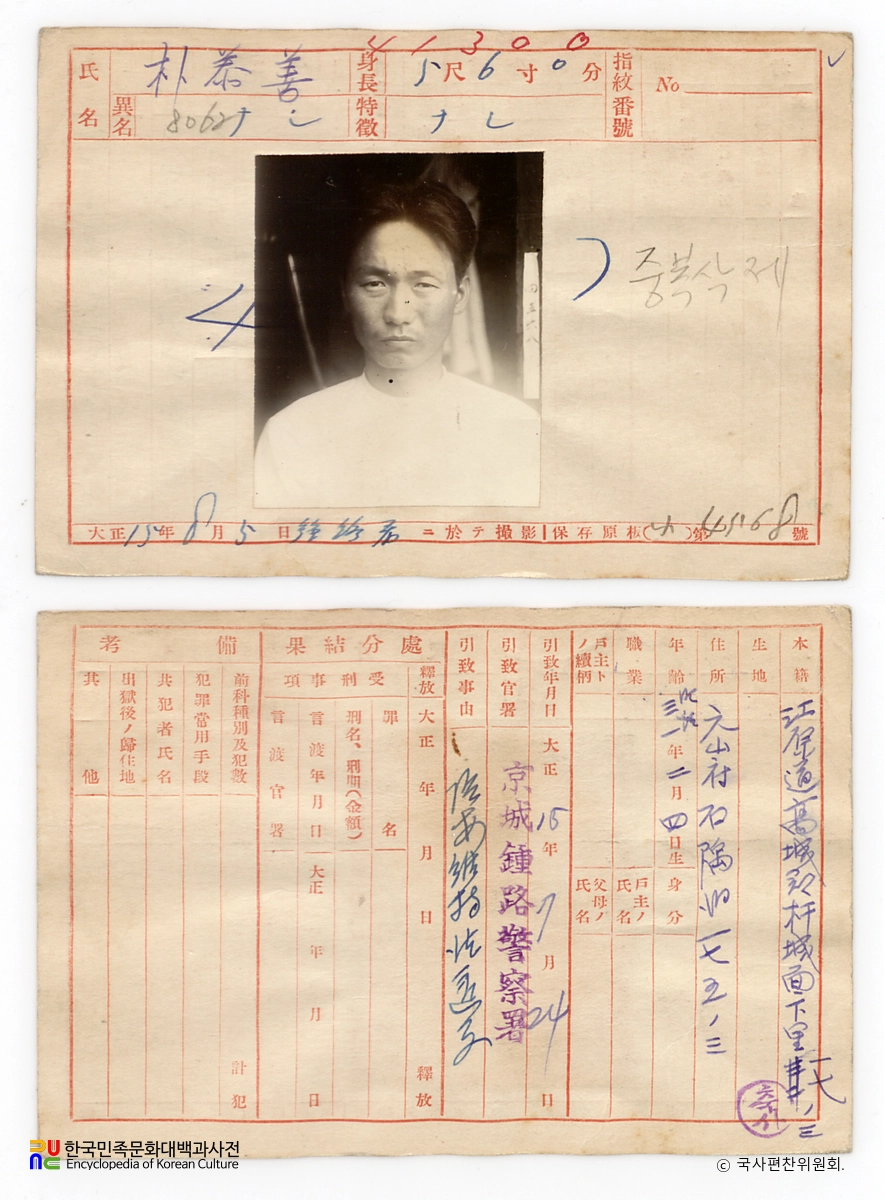 41300
氏名 朴泰善 身長 5尺6寸0分 指紋番號 No
異名 ナシ 8062 特徵 ナシ
4
中복삭제
大正15年8月5日鍾路署ニ於テ撮影 保存原板(小)第45168號
本籍 江原道高城郡杆城面下里一七ノ三
生地
住所 元山府石隅洞一七五ノ三
年齡 三一年二月四日生 身分
職業 戶主ノ氏名
戶主トノ續柄 父母ノ氏名
引致年月日 大正15年7月24日
引致官署 京城鍾路警察署
引致事由 治安維持法違反
處分結果
釋放 大正 年 月 日 釋放
受刑事項
罪名
刑名、刑期(金額)
言渡年月日 大正 年 月 日
言渡官署
備考
前科種別及犯數 計 犯
犯罪常用手段
共犯者氏名
出獄後ノ歸住地
其他
한국민족문화대백과사전
Encyclopedia of Korean Culture
© 국사편찬위원회.